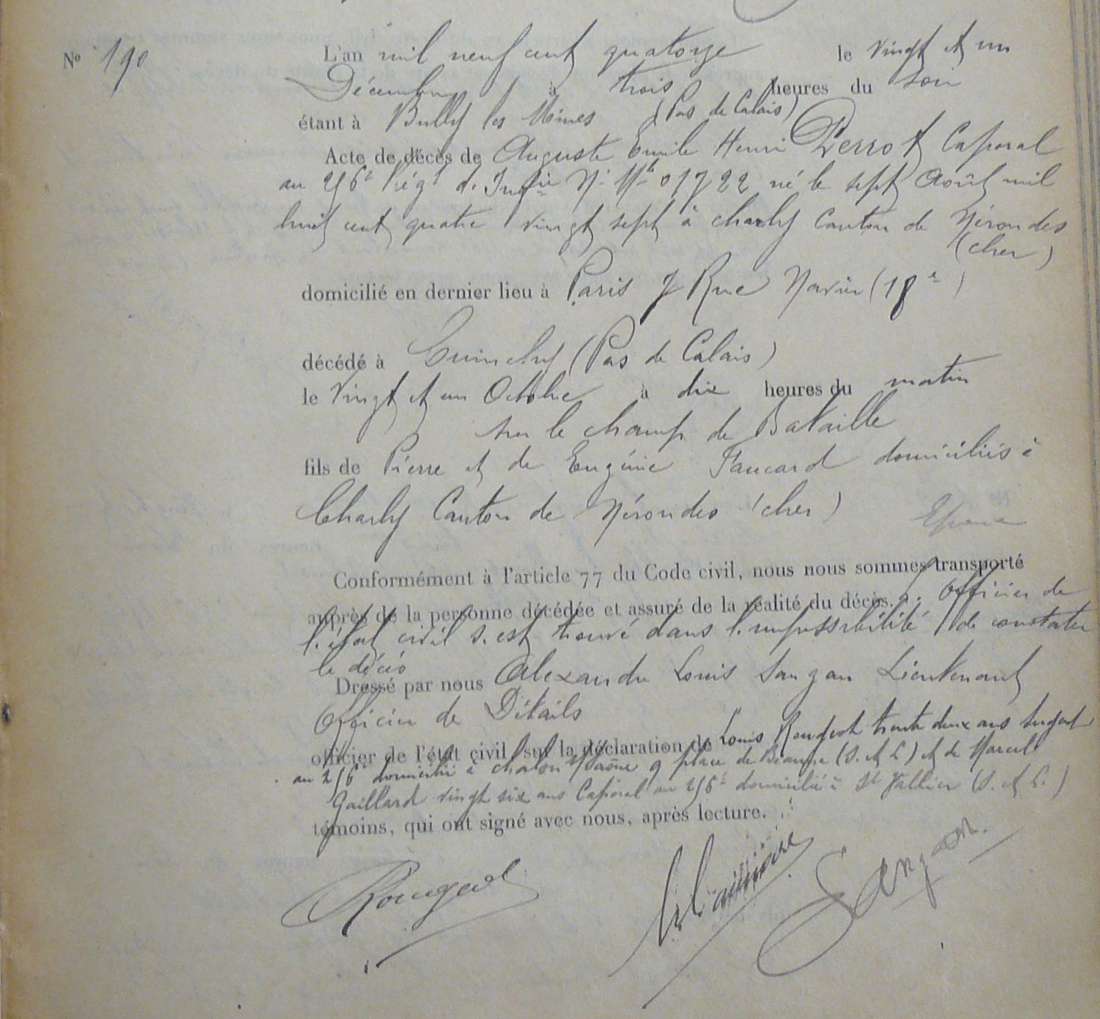 N° 190
L'an mil neuf cent quatorze le vingt et un
Décembre à trois heures du soir
étant à Bully les Mines (Pas de Calais)
Acte de décès de Auguste Emile Henri Perrot Caporal
au 256e Régt d'Infie N° Mle 01722 né le sept Août mil
huit cent quatre vingt sept à Charly Canton de Nérondes
(Cher)
domicilié en dernier lieu à Paris 7 Rue (18e)
décédé à Cuinchy (Pas de Calais)
le vingt et un Octobre à dix heures du matin
sur le champ de Bataille
fils de Pierre et de Eugénie Faucard domiciliés à
Charly Canton de Nérondes (Cher)
Conformément à l'article 77 du Code civil, nous nous sommes transporté
auprès de la personne décédée et assuré de la réalité du décès. L'Officier de
l'état civil s'est trouvé dans l'impossibilité de constater
le décès
Dressé par nous Alexandre Louis Sangan Lieutenant
Officier de Détails
officier de l'état civil, sur la déclaration de Louis trente deux ans Sergent
au 256e domicilié à Chalon s/Saône 9 place de Beaune (S. et L.) et de Marcel
Gaillard vingt six ans Caporal au 256e domicilié à St Vallier (S. et L.)
témoins, qui ont signé avec nous, après lecture.
Sangan